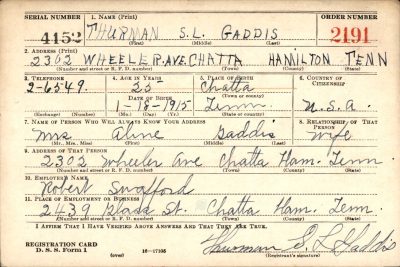 SERIAL NUMBER 1. NAME (Print) ORDER NUMBER
4152 THURMAN S.L. GADDIS 2191
(First) (Middle) (Last)
2. ADDRESS (Print)
2302 WHEELER.AVE. CHATTA HAMILTON TENN
(Number and street or R. F. D. number) (Town) (County) (State)
3. TELEPHONE 4. AGE IN YEARS 5. PLACE OF BIRTH 6. COUNTRY OF CITIZENSHIP
2-6549. 25 Chatta
DATE OF BIRTH (Town or county)
1-16-1915 Tenn U.S.A.
(Exchange) (Number) (Mo.) (Day) (Yr.) (State or country)
7. NAME OF PERSON WHO WILL ALWAYS KNOW YOUR ADDRESS 8. RELATIONSHIP OF THAT PERSON
Mrs Aline Gaddis Wife
(Mr., Mrs., Miss) (First) (Middle) (Last)
9. ADDRESS OF THAT PERSON
2302 Wheeler Ave Chatta Ham. Tenn.
(Number and street or R. F. D. number) (Town) (County) (State)
10. EMPLOYER'S NAME
Robert Swafford
11. PLACE OF EMPLOYMENT OR BUSINESS
2439 Glass St. Chatta Ham. Tenn.
(Number and street or R. F. D. number) (Town) (County) (State)
I AFFIRM THAT I HAVE VERIFIED ABOVE ANSWERS AND THAT THEY ARE TRUE.
REGISTRATION CARD
D. S. S. Form 1 (over) 16—17105 Thurman S L Gaddis
(Registrant's signature)